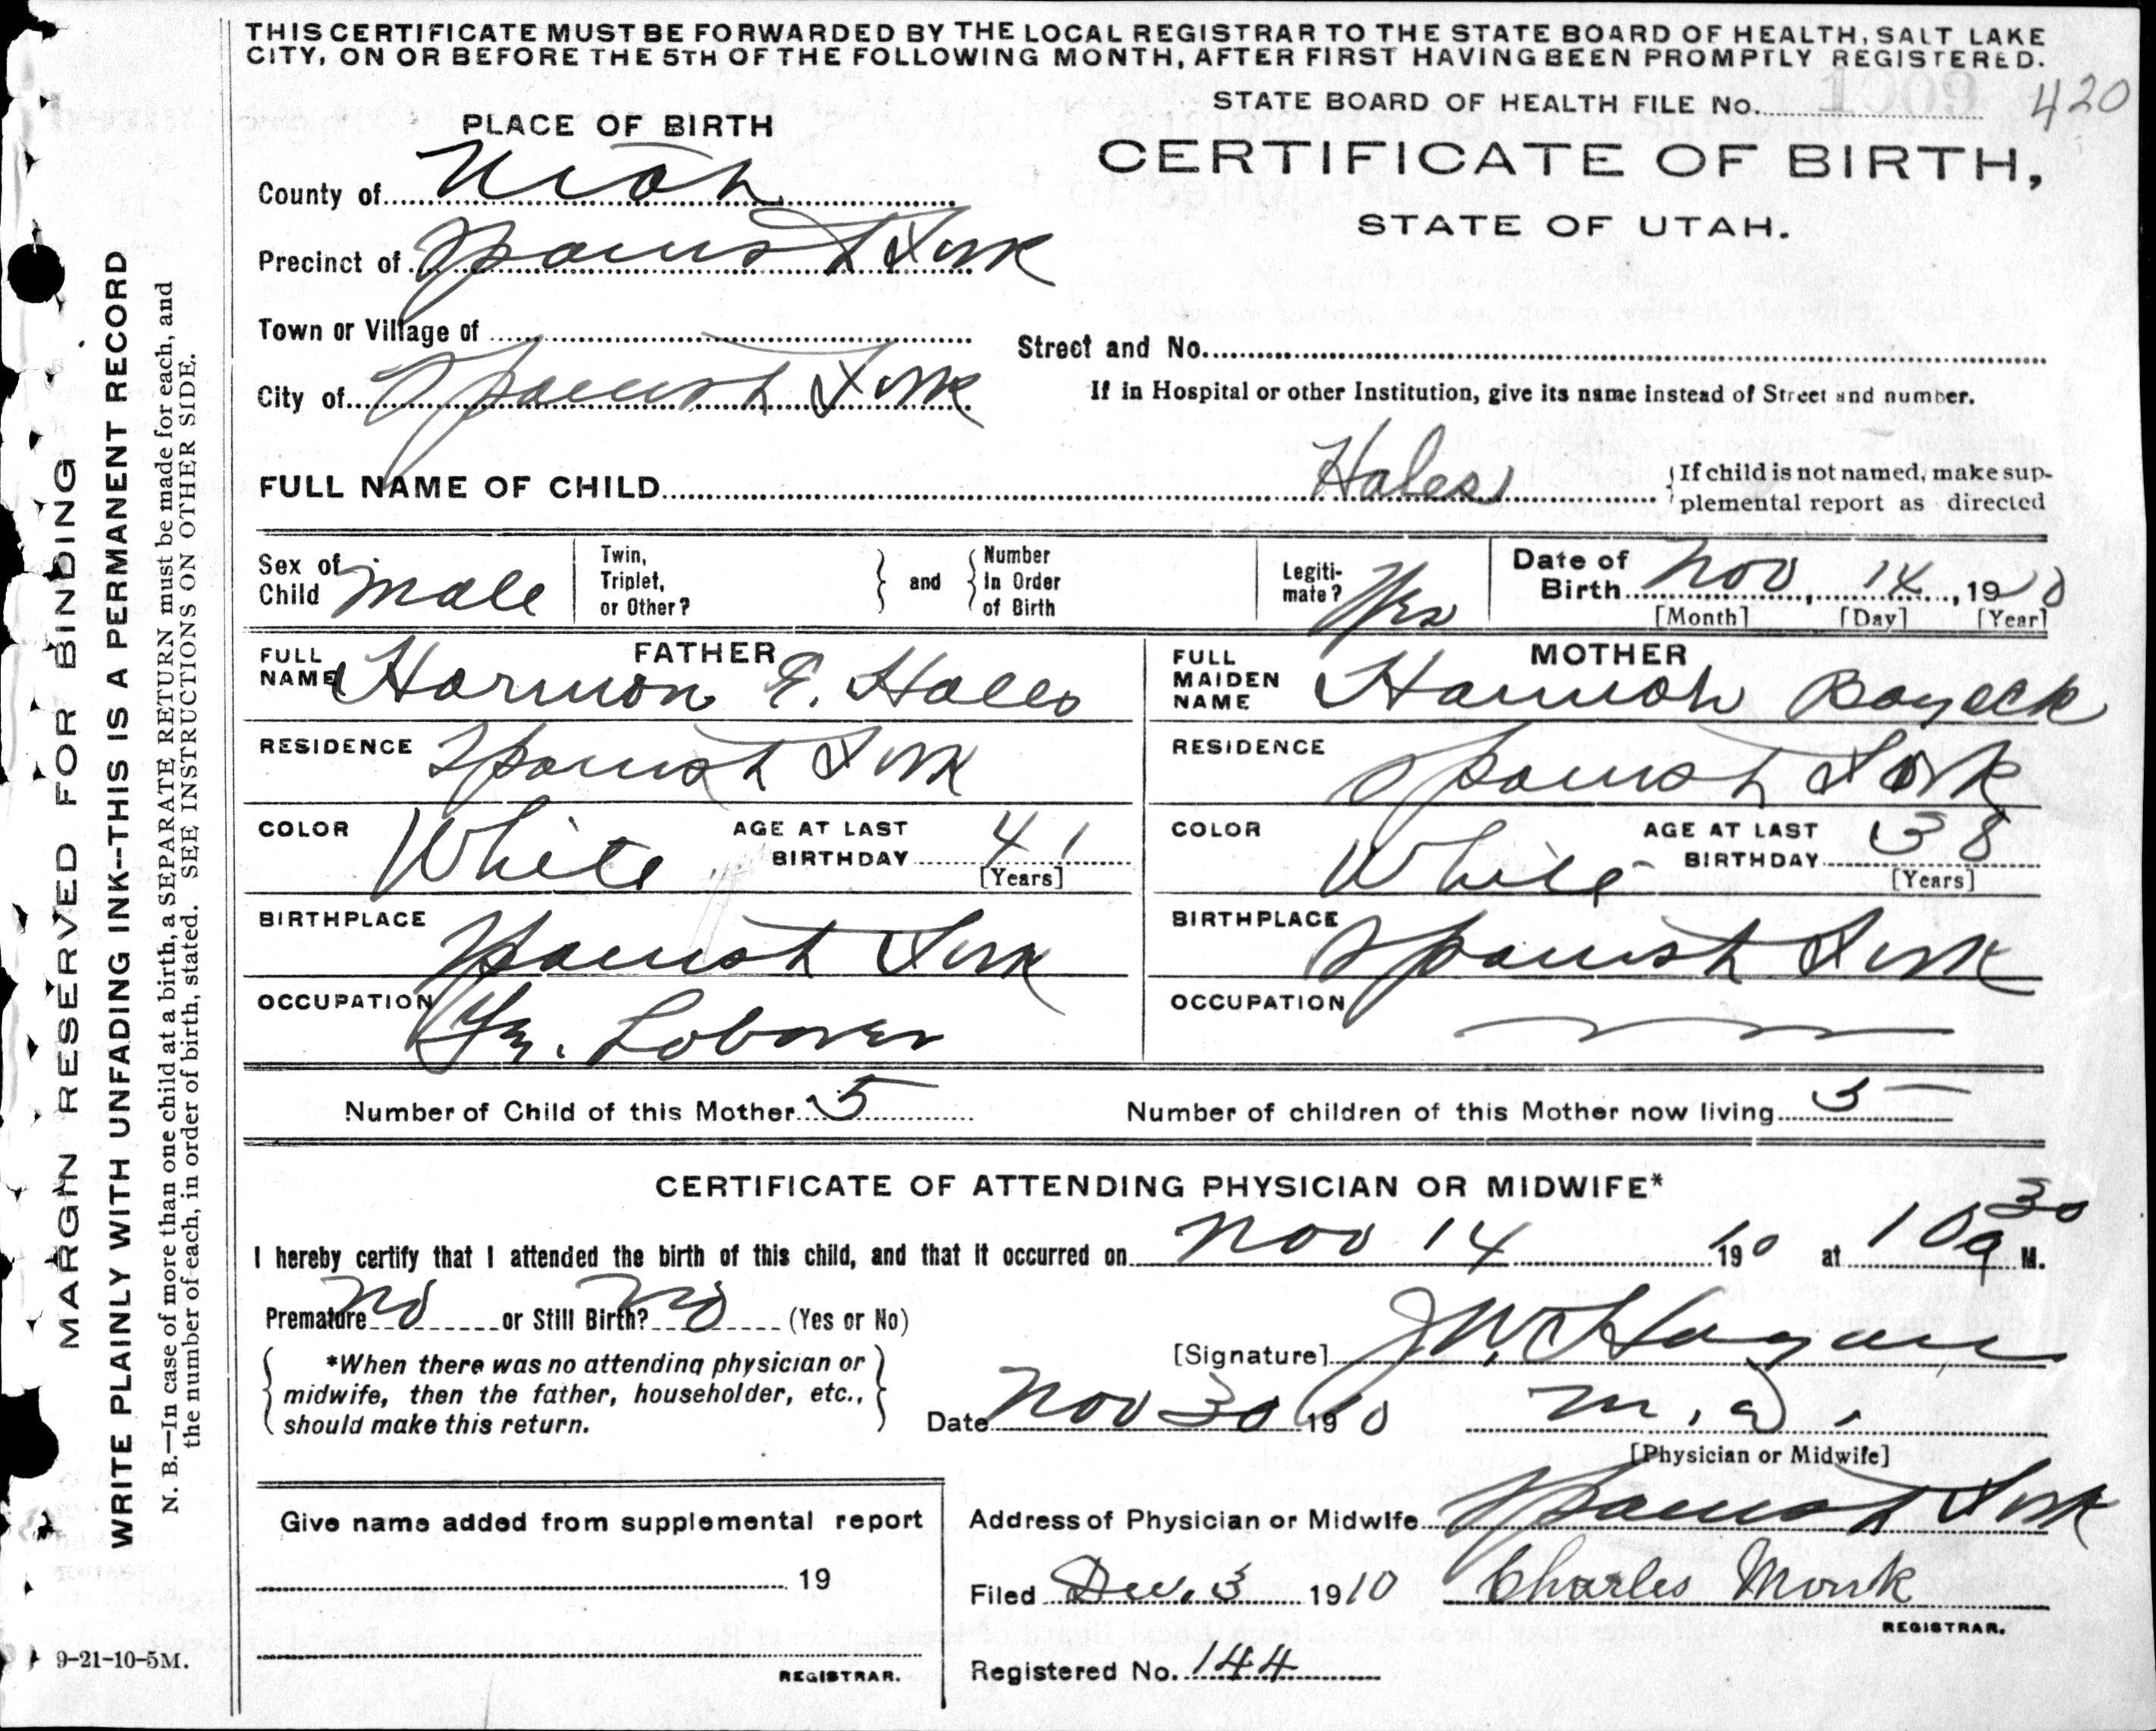 THIS CERTIFICATE MUST BE FORWARDED BY THE LOCAL REGISTRAR TO THE STATE BOARD OF HEALTH, SALT LAKE
CITY, ON OR BEFORE THE 5TH OF THE FOLLOWING MONTH, AFTER FIRST HAVING BEEN PROMPTLY REGISTERED.
STATE BOARD OF HEALTH FILE No. 1009 420
PLACE OF BIRTH
CERTIFICATE OF BIRTH,
STATE OF UTAH.
County of Utah
Precinct of Spanish Fork
Town or Village of
Street and No.
City of Spanish Fork
If in Hospital or other Institution, give its name instead of Street and number.
FULL NAME OF CHILD Hales {If child is not named, make sup-
plemental report as directed
Sex of Child male
Twin, Triplet, or Other? } and { Number In Order of Birth
Legiti-mate? Yes
Date of Birth Nov, 14, 1910
[Month] [Day] [Year]
FATHER
FULL NAME Harmon E. Hales
MOTHER
FULL MAIDEN NAME Hannah Boyack
RESIDENCE Spanish Fork
RESIDENCE Spanish Fork
COLOR White AGE AT LAST BIRTHDAY 41 [Years]
COLOR White AGE AT LAST BIRTHDAY 38 [Years]
BIRTHPLACE Spanish Fork
BIRTHPLACE Spanish Fork
OCCUPATION Laborer
OCCUPATION
Number of Child of this Mother 5
Number of children of this Mother now living 5
CERTIFICATE OF ATTENDING PHYSICIAN OR MIDWIFE*
I hereby certify that I attended the birth of this child, and that it occurred on Nov 14 1910 at 10 30 a M.
Premature No or Still Birth? No (Yes or No)
*When there was no attending physician or
midwife, then the father, householder, etc.,
should make this return.
[Signature] J W Hagan
Date Nov 30 1910 M. D.
[Physician or Midwife]
Give name added from supplemental report
19
REGISTRAR.
Address of Physician or Midwife Spanish Fork
Filed Dec. 3 1910 Charles Monk
REGISTRAR.
Registered No. 144
9-21-10-5M.
MARGIN RESERVED FOR BINDING
WRITE PLAINLY WITH UNFADING INK--THIS IS A PERMANENT RECORD
N. B.—In case of more than one child at a birth, a SEPARATE RETURN must be made for each, and
the number of each, in order of birth, stated. SEE INSTRUCTIONS ON OTHER SIDE.